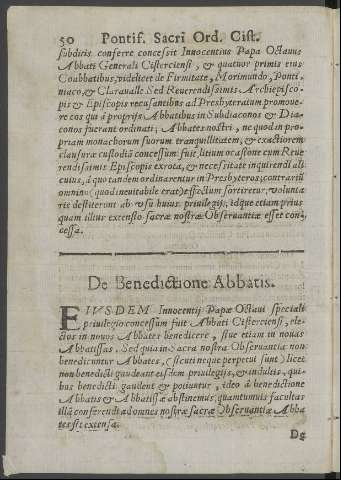 50 Pontif. Sacri Ord. Cist.
subditis conferre concessit Innocentius Papa Octauus
Abbati Generali Cisterciensi, & quatuor primis eius
Coabbatibus, videlicet de Firmitate, Morimundo, Ponti,
niaco, & Claraualle Sed Reuerendissimis Archiepisco-
pis & Episcopis recusantibus ad Presbyteratum promoue-
re eos qui à proprijs Abbatibus in Subdiaconos & Dia-
conos fuerant ordinati; Abbates nostri, ne quod in pro-
priam monachorum suorum tranquillitatem, & exactiorem
clausuræ custodiã concessum fuit, litium ocasione cum Reue
rendissimis Episcopis exroca, & necesitate inquirendi ali
cuius, à quo tandem ordinarentur in Presbyteros, contrariũ
omnino (quod ineuitabile erat) effectum sortiretur, voluntа
riè destiterunt ab vsu huius priuilegij; idque etiam prius
quam illius extensio sacræ nostræ Obseruantiæ esset con,
cessa.
De Benedictione Abbatis.
EIVSDEM Innocentij Papæ Octaui speciali
priuilegio concessum fuit Abbati Cisterciensi, ele-
ctos in nouos Abbates benedicere, siue etiam in nouas
Abbatissas, Sed quia in Sacra nostra Obseruantia non
benedicuntur Abbates, (sicuti neque perpetui sunt) licet
non benedicti gaudeant eisdem priuilegijs, & indultis, qui-
bus benedicti gaudent & potiuntur, ideo à benedictione
Abbatis & Abbatissæ abstinemus, quantumuis facultas
illã conferendi ad omnes nostræ sacræ Obseruantiæ Abba
tes sit extensa.
De